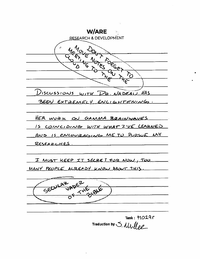 W/ARE
RESEARCH & DEVELOPMENT
DON'T FORGET TO
MOVE NOTES ON THE
MEETING TO THE
CLOUD
DISCUSSIONS WITH DR. NADEAU HAS
BEEN EXTREMELY ENLIGHTENING.
HER WORK ON GAMMA BRAINWAVES
IS COINCIDING WITH WHAT I'VE LEARNED
AND IS ENCOURAGING ME TO PURSUE MY
RESEARCHES
I MUST KEEP IT SECRET FOR NOW, TOO
MANY PEOPLE ALREADY KNOW ABOUT THIS.
SECULAR
OF THE
BIBLE
Traduction by S. Miller